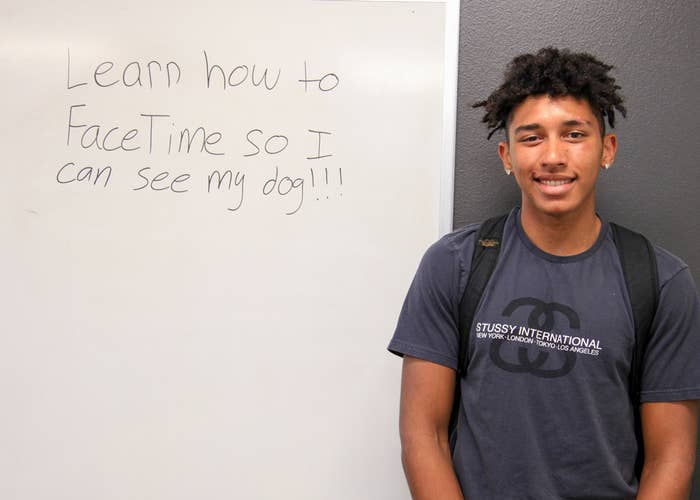 Learn how to
FaceTime so I
can see my dog!!!
STUSSY INTERNATIONAL
NEW YORK·LONDON·TOKYO·LOS ANGELES